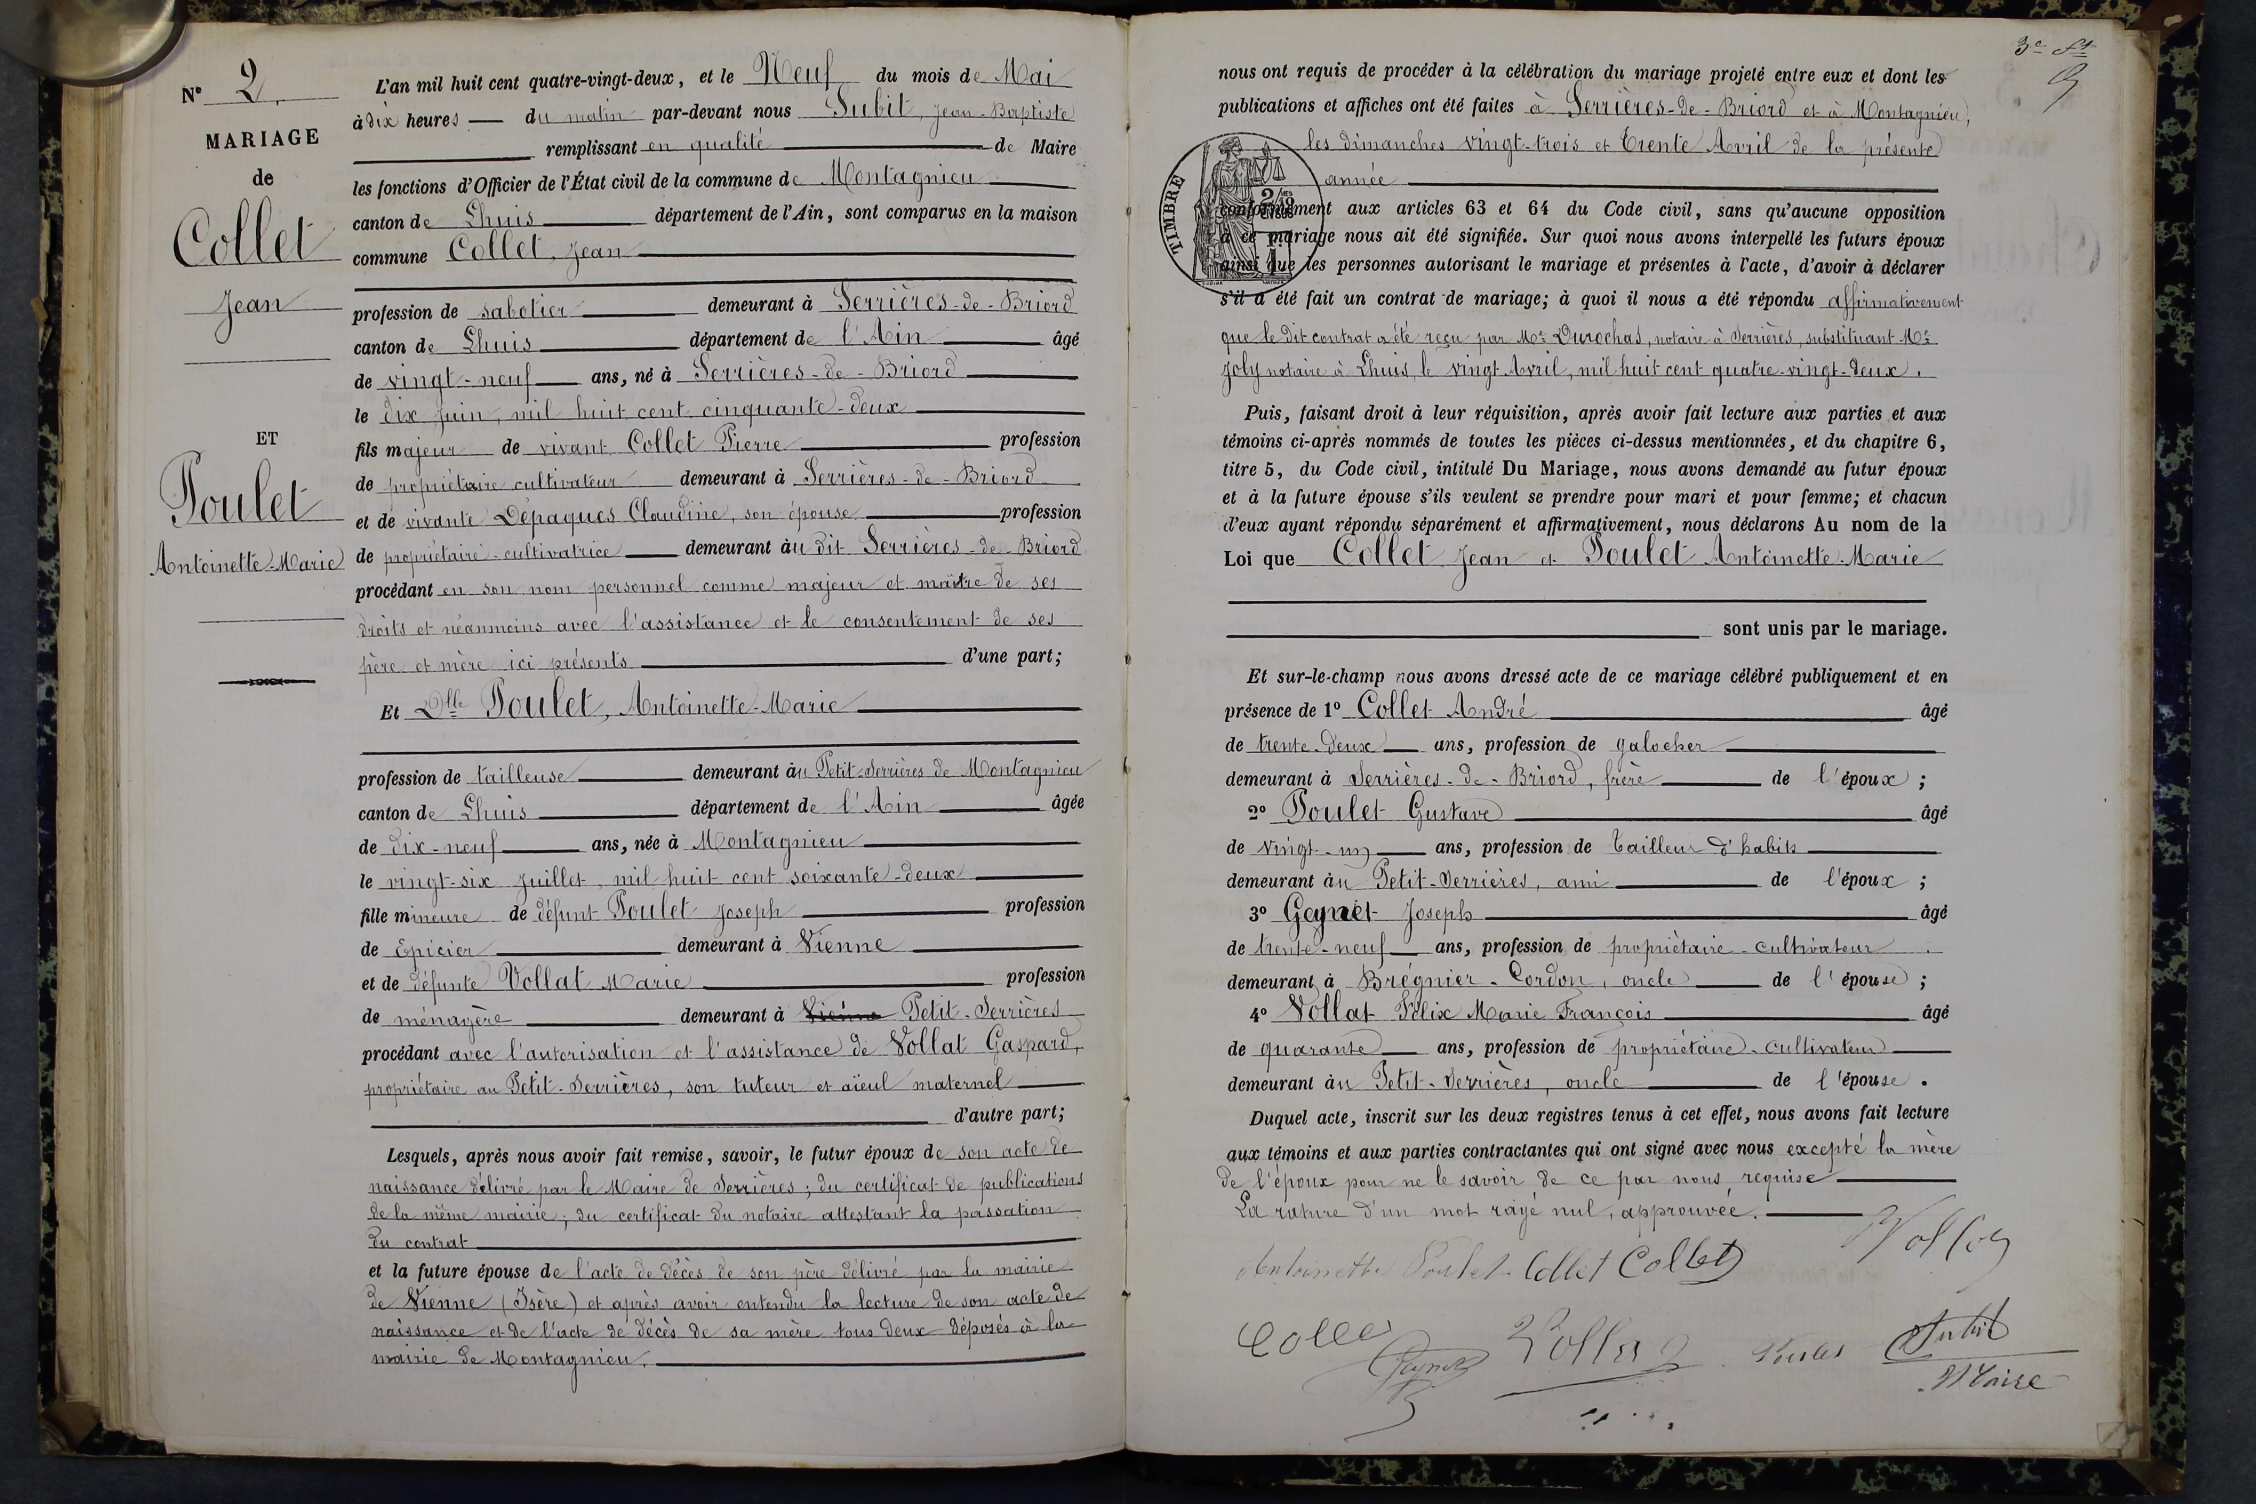 N° 2.
MARIAGE
de
Collet
Jean
ET
Poulet
Antoinette-Marie
L'an mil huit cent quatre-vingt-deux, et le Neuf du mois de Mai
à dix heures du matin par-devant nous Subit, Jean-Baptiste
remplissant en qualité de Maire
les fonctions d'Officier de l'État civil de la commune de Montagnieu
canton de Lhuis département de l'Ain, sont comparus en la maison
commune Collet, Jean
profession de sabotier demeurant à Serrières-de-Briord
canton de Lhuis département de l'Ain âgé
de vingt-neuf ans, né à Serrières-de-Briord
le dix juin, mil huit cent cinquante-deux
fils majeur de vivant Collet Pierre profession
de propriétaire cultivateur demeurant à Serrières-de-Briord
et de vivante Dépaques Claudine, son épouse profession
de propriétaire-cultivatrice demeurant àu dit Serrières-de-Briord
procédant en son nom personnel comme majeur et maître de ses
droits et néanmoins avec l'assistance et le consentement de ses
père et mère ici présents d'une part;
Et Dlle Poulet, Antoinette-Marie
profession de tailleuse demeurant àu Petit-Serrières de Montagnieu
canton de Lhuis département de l'Ain âgée
de dix-neuf ans, née à Montagnieu
le vingt-six Juillet, mil huit cent soixante-deux
fille mineure de défunt Poulet Joseph profession
de Epicier demeurant à Vienne
et de défunte Vollat Marie profession
de ménagère demeurant à Vienne Petit-Serrières
procédant avec l'autorisation et l'assistance de Vollat Gaspard,
propriétaire au Petit-Serrières, son tuteur et aïeul maternel
d'autre part;
Lesquels, après nous avoir fait remise, savoir, le futur époux de son acte de
naissance délivré par le Maire de Serrières; du certificat de publications
de la même mairie; du certificat du notaire attestant la passation
du contrat
et la future épouse de l'acte de décès de son père délivré par la mairie
de Vienne (Isère) et après avoir entendu la lecture de son acte de
naissance et de l'acte de décès de sa mère tous deux déposés à la
mairie de Montagnieu.
3e ft
nous ont requis de procéder à la célébration du mariage projeté entre eux et dont les
publications et affiches ont été faites à Serrières-de-Briord et à Montagnieu,
les dimanches vingt-trois et trente Avril de la présente
année
TIMBRE
conformément aux articles 63 et 64 du Code civil, sans qu'aucune opposition
à ce mariage nous ait été signifiée. Sur quoi nous avons interpellé les futurs époux
ainsi que les personnes autorisant le mariage et présentes à l'acte, d'avoir à déclarer
s'il a été fait un contrat de mariage; à quoi il nous a été répondu affirmativement
que le dit contrat a été reçu par Me Durochas, notaire à Serrières, substituant Me
Joly notaire à Lhuis, le vingt Avril, mil huit cent quatre-vingt-deux.
Puis, faisant droit à leur réquisition, après avoir fait lecture aux parties et aux
témoins ci-après nommés de toutes les pièces ci-dessus mentionnées, et du chapitre 6,
titre 5, du Code civil, intitulé Du Mariage, nous avons demandé au futur époux
et à la future épouse s'ils veulent se prendre pour mari et pour femme; et chacun
d'eux ayant répondu séparément et affirmativement, nous déclarons Au nom de la
Loi que Collet Jean et Poulet Antoinette-Marie
sont unis par le mariage.
Et sur-le-champ nous avons dressé acte de ce mariage célébré publiquement et en
présence de 1° Collet André âgé
de trente-deux ans, profession de galocher
demeurant à Serrières-de-Briord, frère de l'époux;
2° Poulet Gustave âgé
de vingt-un ans, profession de tailleur d'habits
demeurant àu Petit-Serrières, ami de l'époux;
3° Geynet Joseph âgé
de trente-neuf ans, profession de propriétaire-cultivateur
demeurant à Brégnier-Cordon, oncle de l'épouse;
4° Vollat Félix Marie François âgé
de quarante ans, profession de propriétaire-cultivateur
demeurant àu Petit-Serrières, oncle de l'épouse.
Duquel acte, inscrit sur les deux registres tenus à cet effet, nous avons fait lecture
aux témoins et aux parties contractantes qui ont signé avec nous excepté la mère
de l'époux pour ne le savoir de ce par nous requise
La rature d'un mot rayé nul, approuvée.
Antoinette Poulet Collet Collet Vollat
Collet Geynet Vollat Poulet Subit
Maire